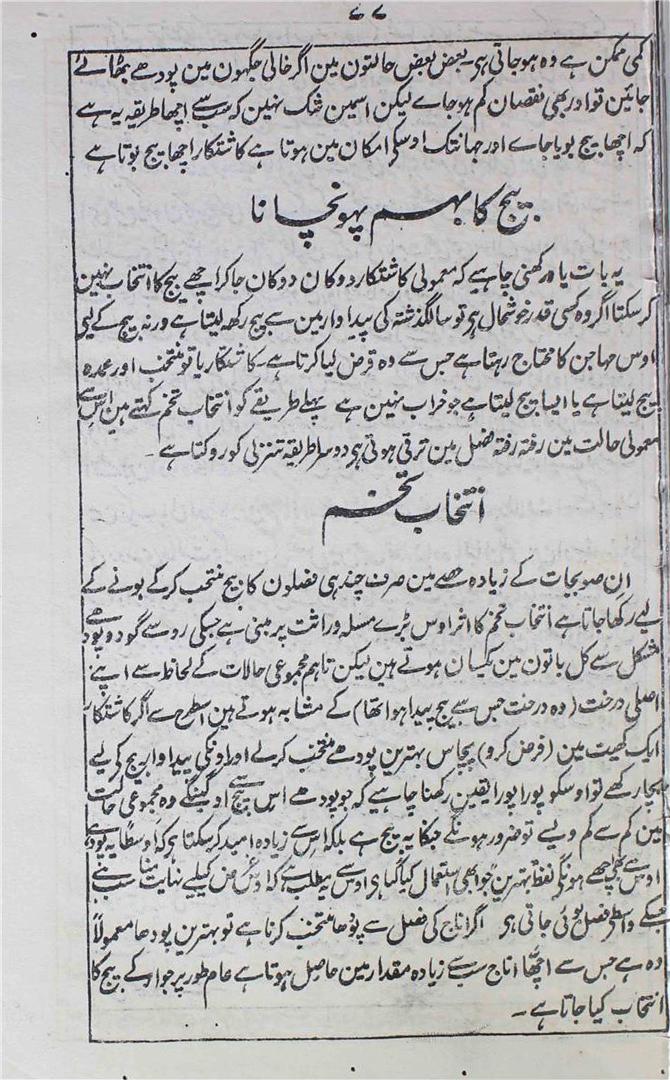 ۷۷
کمی ممکن ہے وہ ہو جاتی ہی۔ بعض بعض حالتون مین اگر خالی جگہون مین پودھے بٹھائے
جائین تو اور بھی نقصان کم ہو جاے لیکن اسمین شک نہین کہ سب سے اچھا طریقہ یہ ہے
کہ اچھا بیج بویا جاے اور جہانتک اوسکی امکان مین ہوتا ہے کاشتکار اچھا بیج بوتا ہے
بیج کا بہم پہونچانا
یہ بات یاد رکھنی چاہیے کہ معمولی کاشتکار دوکان دوکان جاکر اچھے بیج کا انتخاب نہین
کر سکتا اگر وہ کسی قدر خوشحال ہی تو سالگذشتہ کی پیداوار مین سے بیج رکھ لیتا ہے ورنہ بیج کے لیے
اوس مہاجن کا محتاج رہتا ہے جس سے وہ قرض لیا کرتا ہے۔ کاشتکار یا تو منتخب اور عمدہ
بیج لیتا ہے یا ایسا بیج لیتا ہے جو خراب نہین ہے پہلے طریقے کو انتخاب تخم کہتے ہین اس سے
معمولی حالت مین رفتہ رفتہ فصل مین ترقی ہوتی ہی دوسرا طریقہ تنزلی کو روکتا ہے۔
انتخاب تخم
ان صوبجات کے زیادہ حصے مین صرف چند ہی فصلون کا بیج منتخب کرکے بونے کے
لیے رکھا جاتا ہے انتخاب تخم کا اثر اوس بڑے مسئلہ وراثت پر مبنی ہے جسکی رو سے گو دو پودھے
مشکل سے کل باتون مین یکسان ہوتے ہین لیکن تاہم مجموعی حالات کے لحاظ سے اپنے
اصلی درخت (وہ درخت جس سے بیج پیدا ہوا تھا) کے مشابہ ہوتے ہین اسطرح سے اگر کاشتکار
ایک کھیت مین (فرض کرو) پچاس بہترین پودھے منتخب کرلے اور اونکی پیداوار بیج کے لیے
بچا رکھے تو اوسکو پورا پورا یقین رکھنا چاہیے کہ جو پودھے اس بیج سے اوگینگے وہ مجموعی حالت
مین کم سے کم ویسے تو ضرور ہونگے جنکا یہ بیج ہے بلکہ اس سے زیادہ امید کر سکتا ہی کہ اوسطاً یہ پودھے
اوس سے بھی اچھے ہونگے لفظ بہترین جو ابھی استعمال کیا گیا ہی اوس سے یہ مطلب ہے کہ اوس غرض کیلیے نہایت مناسب ہے
جسکے واسطے فصل بوئی جاتی ہی اگر اناج کی فصل سے پودھا منتخب کرنا ہے تو بہترین پودھا معمولاً
وہ ہے جس سے اچھا اناج سب سے زیادہ مقدار مین حاصل ہوتا ہے عام طور پر جوار کے بیج کا
انتخاب کیا جاتا ہے۔